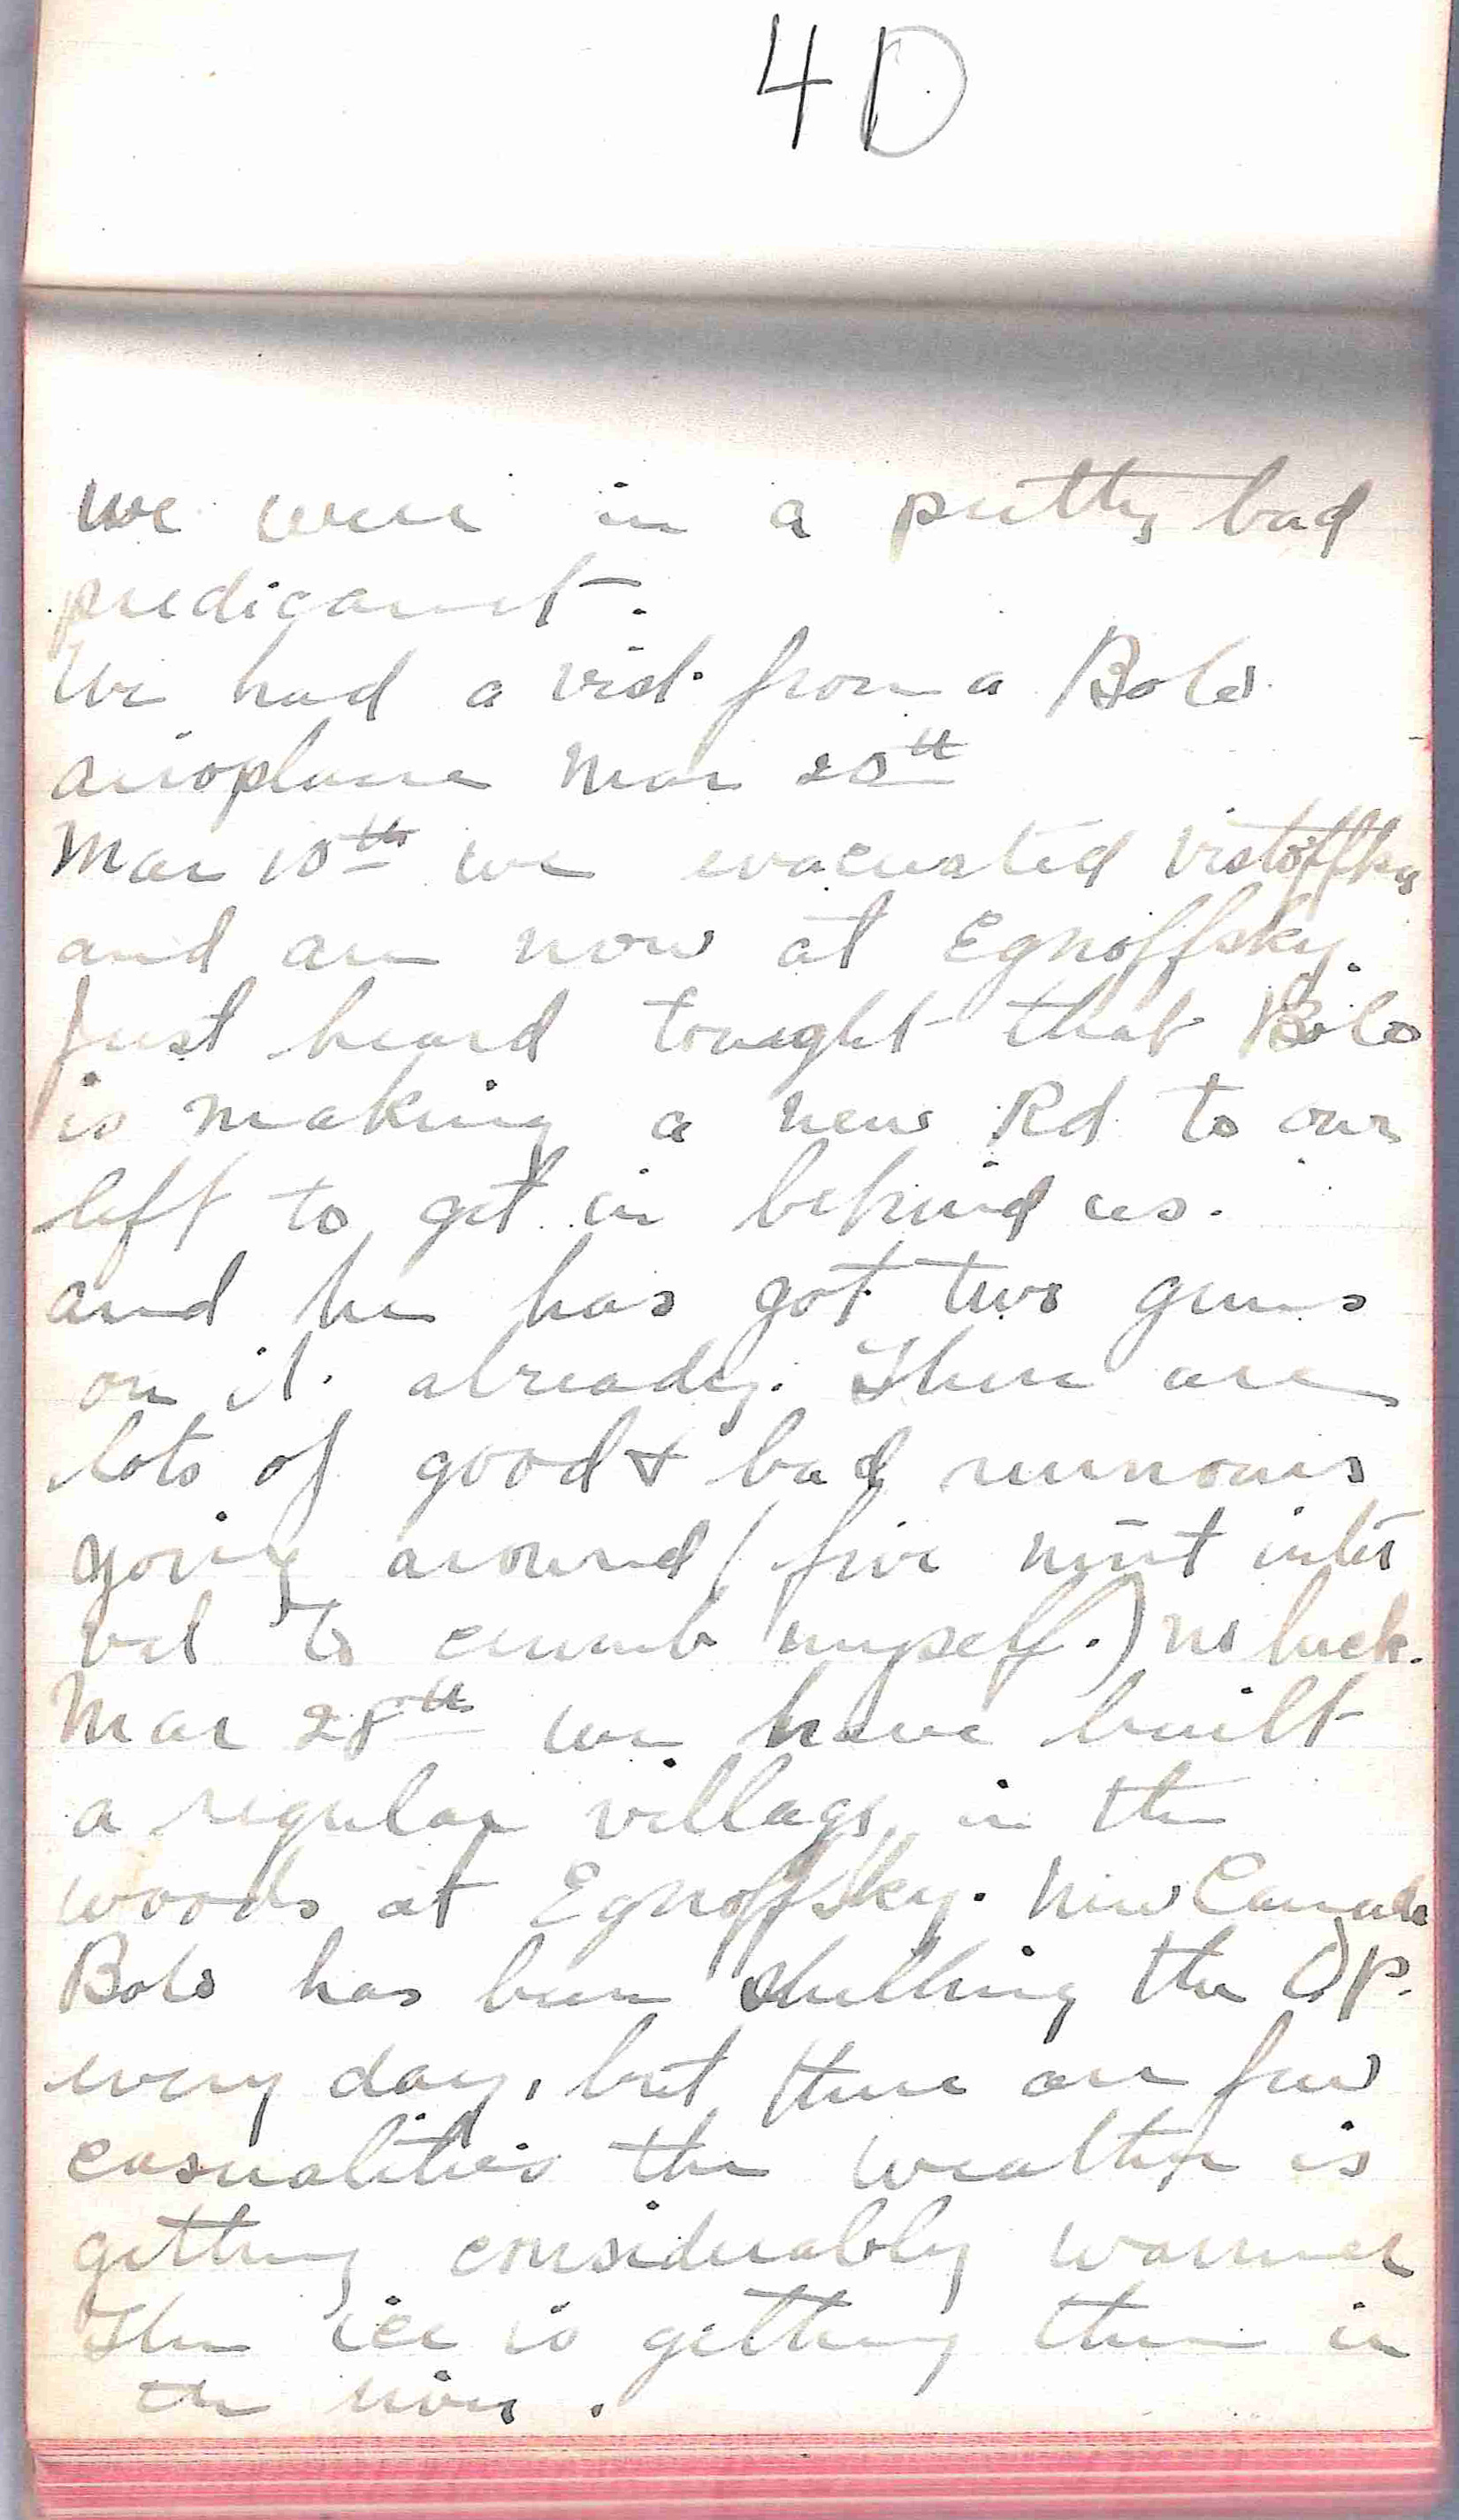 40
we were in a pretty bad
predicament.
We had a visit from a Bolo
airoplane Mar 20th
Mar 10th we evacuated Vistoffka
and are now at Egnoffsky.
Just heard tonight that Bolo
is making a new Rd to our
left to get in behind us.
and he has got two guns
on it already. There are
lots of good & bad rumours
going around (five minit inter
val to crumb myself.) no luck.
Mar 28th we have built
a regular village in the
woods at Egnoffsky. New Canada
Bolo has been shelling the O.P.
every day, but there are few
casualities the weather is
getting considerably warmer
The ice is getting thin in
the river.